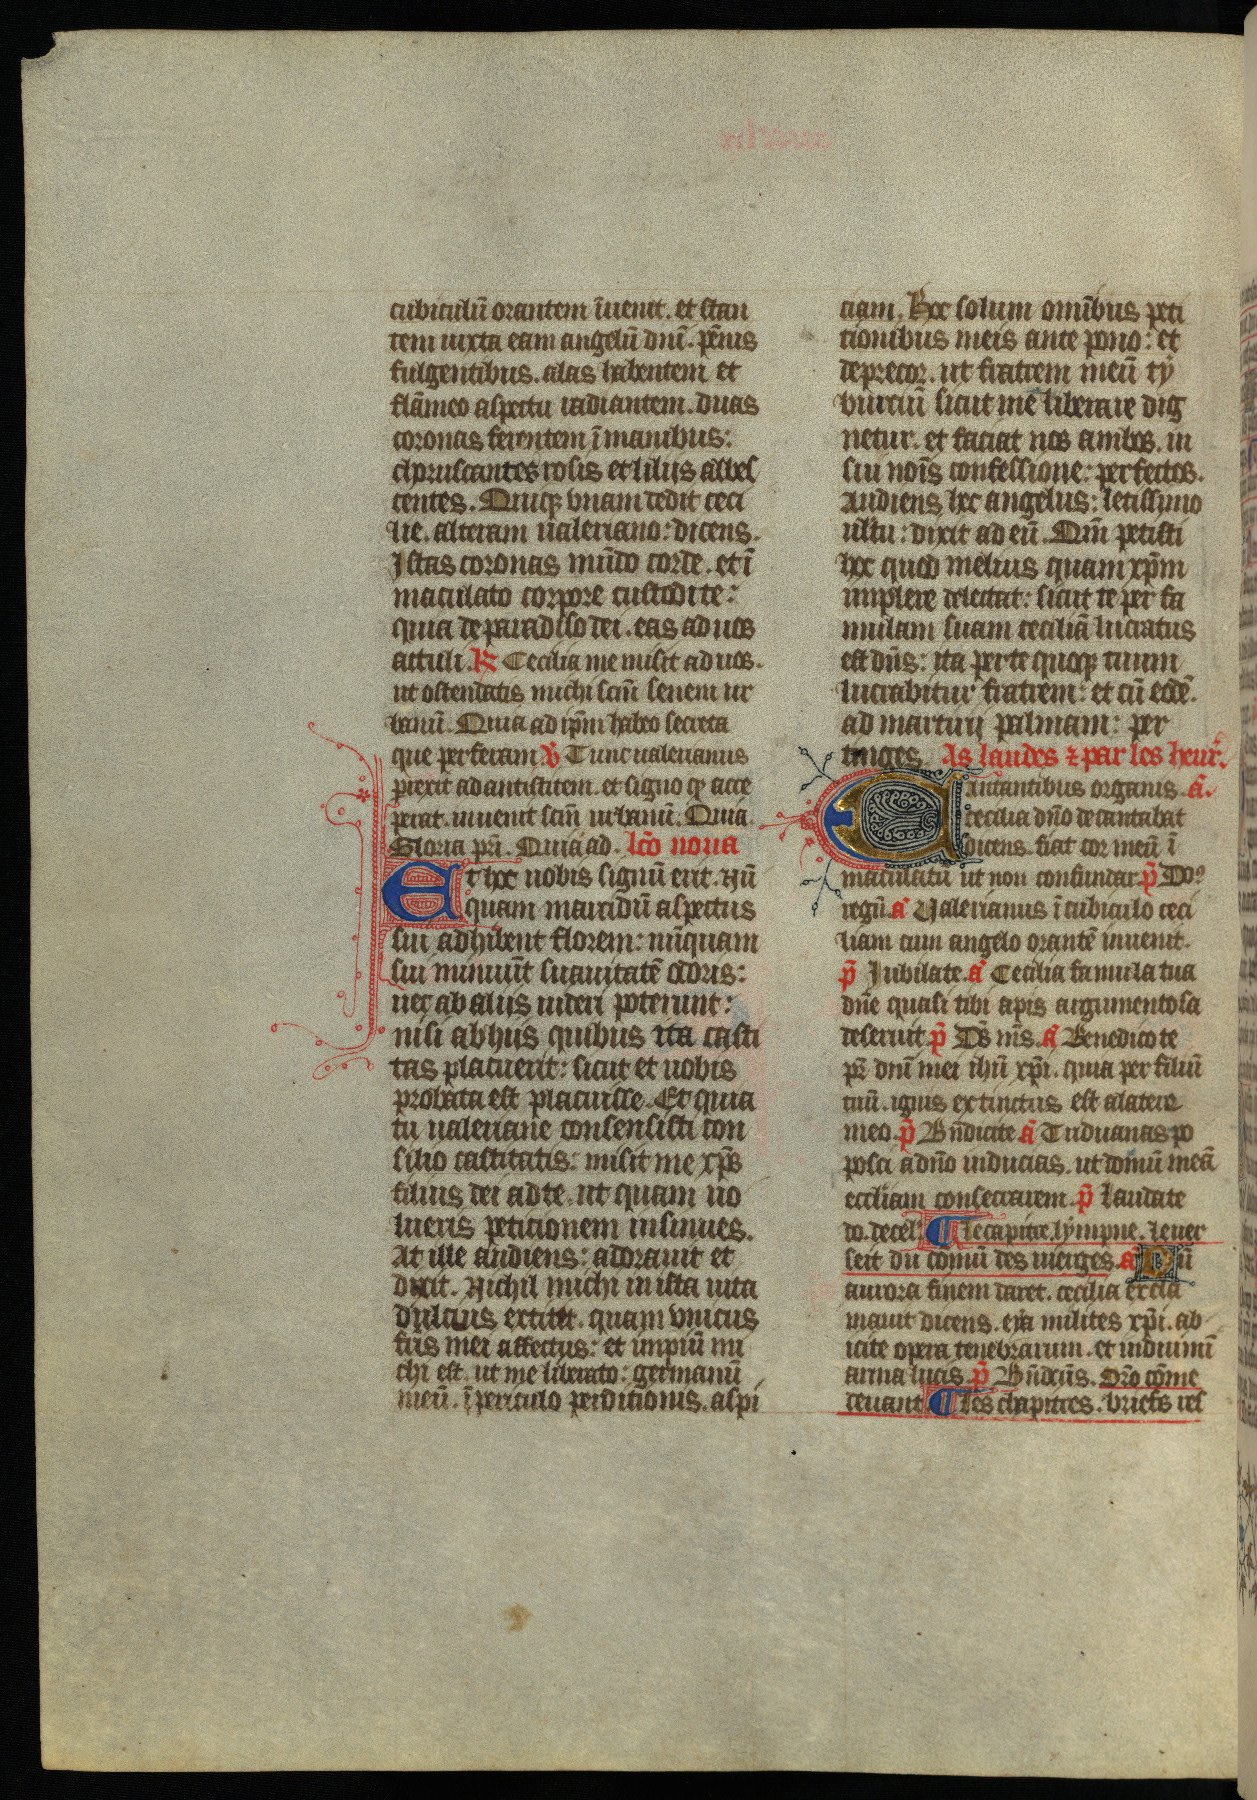 cubiculū orantem īuenit. et stan
tem iuxta eam angelū dnī. pēnis
fulgentibus. alas habentem et
flāmeo aspectu radiantem. duas
coronas ferentem ī manibus:
choruscantes rosis et lilijs albes
centes. Quiqꝫ vnam dedit ceci
lie. alteram ualeriano: dicens.
Istas coronas mūdo corde. et ī
maculato corpore custodite:
quia de paradiso dei. eas ad uos
attuli. R̄ Cecilia me misit ad uos.
ut ostendatis michi scm̄ senem ur
banū. Quia ad ip̄m habeo secreta
que perferam. V̄ Tunc ualerianus
prexit ad antistitem. et signo qꝫ acce
perat. inuenit scm̄ urbanū. Quia
Gloria pr̄i. Quia ad. lc̄o nona
Et hec uobis signū erit. Nū
quam marcidū aspectus
sui adhibent florem: nūquam
sui minuūt suauitatē odoris:
nec ab alijs uideri poterunt:
nisi ab hijs quibus ita casti
tas placuerit: sicut et uobis
probata est placuisse. Et quia
tu ualeriane consensisti con
silio castitatis: misit me xp̄s
filius dei ad te. ut quam uo
lueris peticionem insinues.
At ille audiens: adorauit et
dixit. Nichil michi in ista uita
dulcius extitit. quam vnicus
fr̄is mei affectus: et impiū mi
chi est. ut me liberato: germanū
meū. ī periculo perditionis. aspi
ciam. Hec solum omībus peti
tionibus meis ante pono: et
deprecor. ut fratrem meū ty
burciū sicut me liberare dig
netur. et faciat nos ambos. in
sui noīs confessione: perfectos.
Audiens hec angelus: letissimo
ultu: dixit ad eū. Qm̄ petisti
hec quod melius quam xp̄m
implere delectat: sicut te per fa
mulam suam ceciliā lucratus
est dn̄s: ita per te quoqꝫ tuum
lucrabitur fratrem: et cū eodē.
ad martirij palmam: per
tinges. As laudes ⁊ par les heur̄.
Cantantibus organis. ā.
cecilia dn̄o decantabat
dicens. fiat cor meū ī
maculatū ut non confundar. p̄ Do9
regū. ā Ualerianus ī cubiculo ceci
liam cum angelo orantē inuenit.
p̄ Iubilate. ā Cecilia famula tua
dn̄e quasi tibi apis argumentosa
deseruit. p̄ Ds̄ ms̄. ā Benedico te
pr̄ dnī mei ihū xp̄i. quia per filiū
tuū. ignis extinctus est a latere
meo. p̄ Bn̄dicite ā Triduanas po
posci a dn̄o inducias. ut domū meā
eccl̄iam consecrarem. p̄ Laudate
do. de cel. ¶ Le capitre. lympne. le uer
seit du comū des uierges. ā Dū
aurora finem daret. cecilia excla
mauit dicens. eya milites xp̄i. ab
icite opera tenebrarum. et induimī
arma lucis. p̄ Bn̄dcūs. Oro cōme
deuant ¶ Les chapitres. briefs res